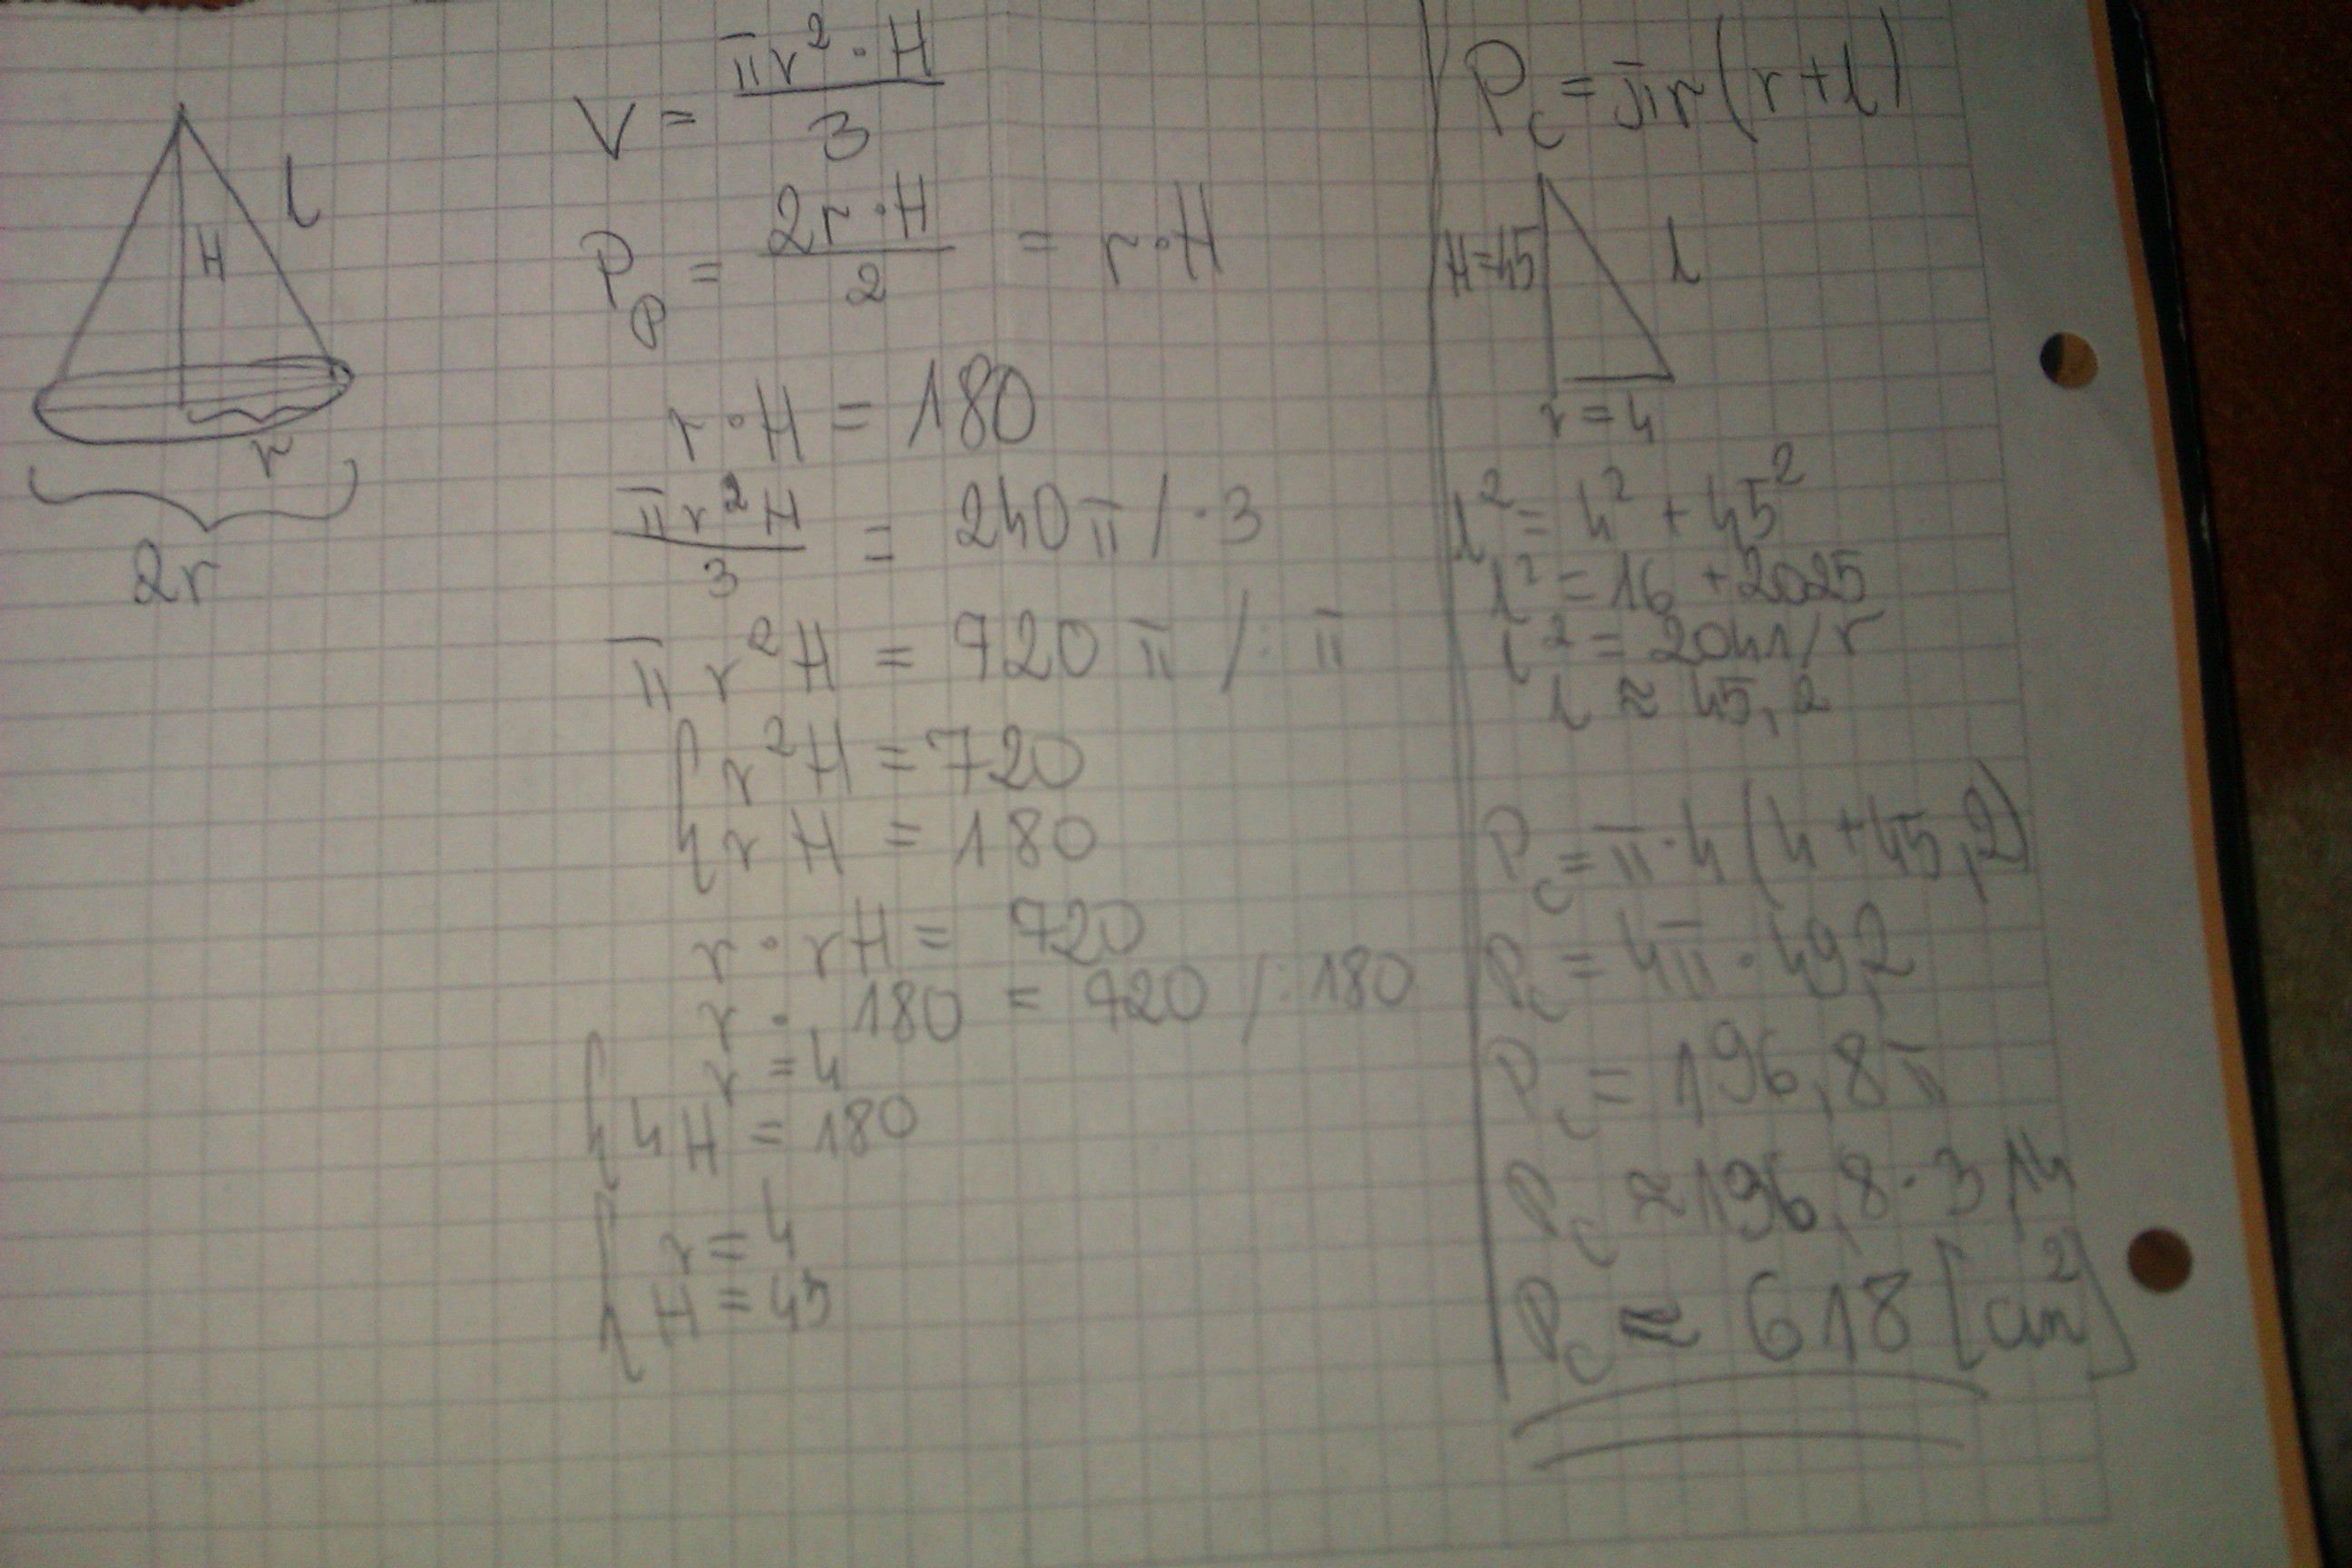 l
H
r
2r
V = πr² · H / 3
P_p = 2r · H / 2 = r · H
r · H = 180
πr²H / 3 = 240π / · 3
πr²H = 720π / : π
{ r²H = 720
{ rH = 180
r · rH = 720
r · 180 = 720 / : 180
{ r = 4
{ 4H = 180
{ r = 4
{ H = 45
P_c = πr(r+l)
H=45
l
r=4
l² = 4² + 45²
l² = 16 + 2025
l² = 2041 / √
l ≈ 45,2
P_c = π · 4(4+45,2)
P_c = 4π · 49,2
P_c = 196,8π
P_c ≈ 196,8 · 3,14
P_c ≈ 618 [cm²]